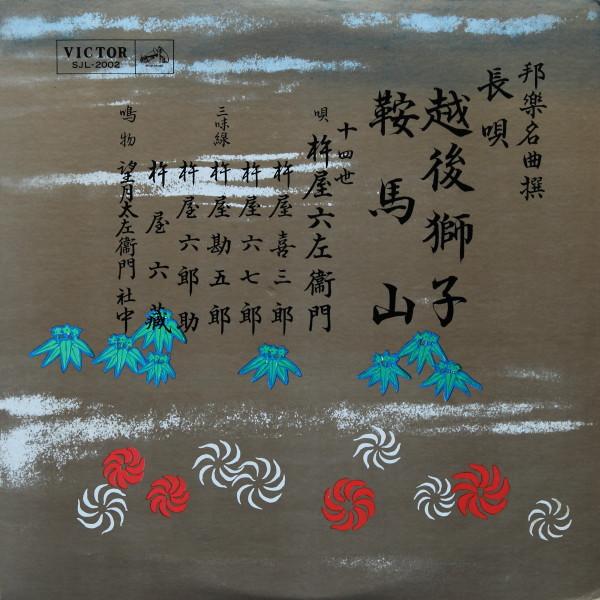 VICTOR
SJL-2002
邦樂名曲撰
長唄
越後獅子
鞍馬山
十四世
唄 杵屋六左衞門
杵屋喜三郎
杵屋六七郎
三味線 杵屋勘五郎
杵屋六郎助
杵屋六藏
鳴物 望月太左衞門社中